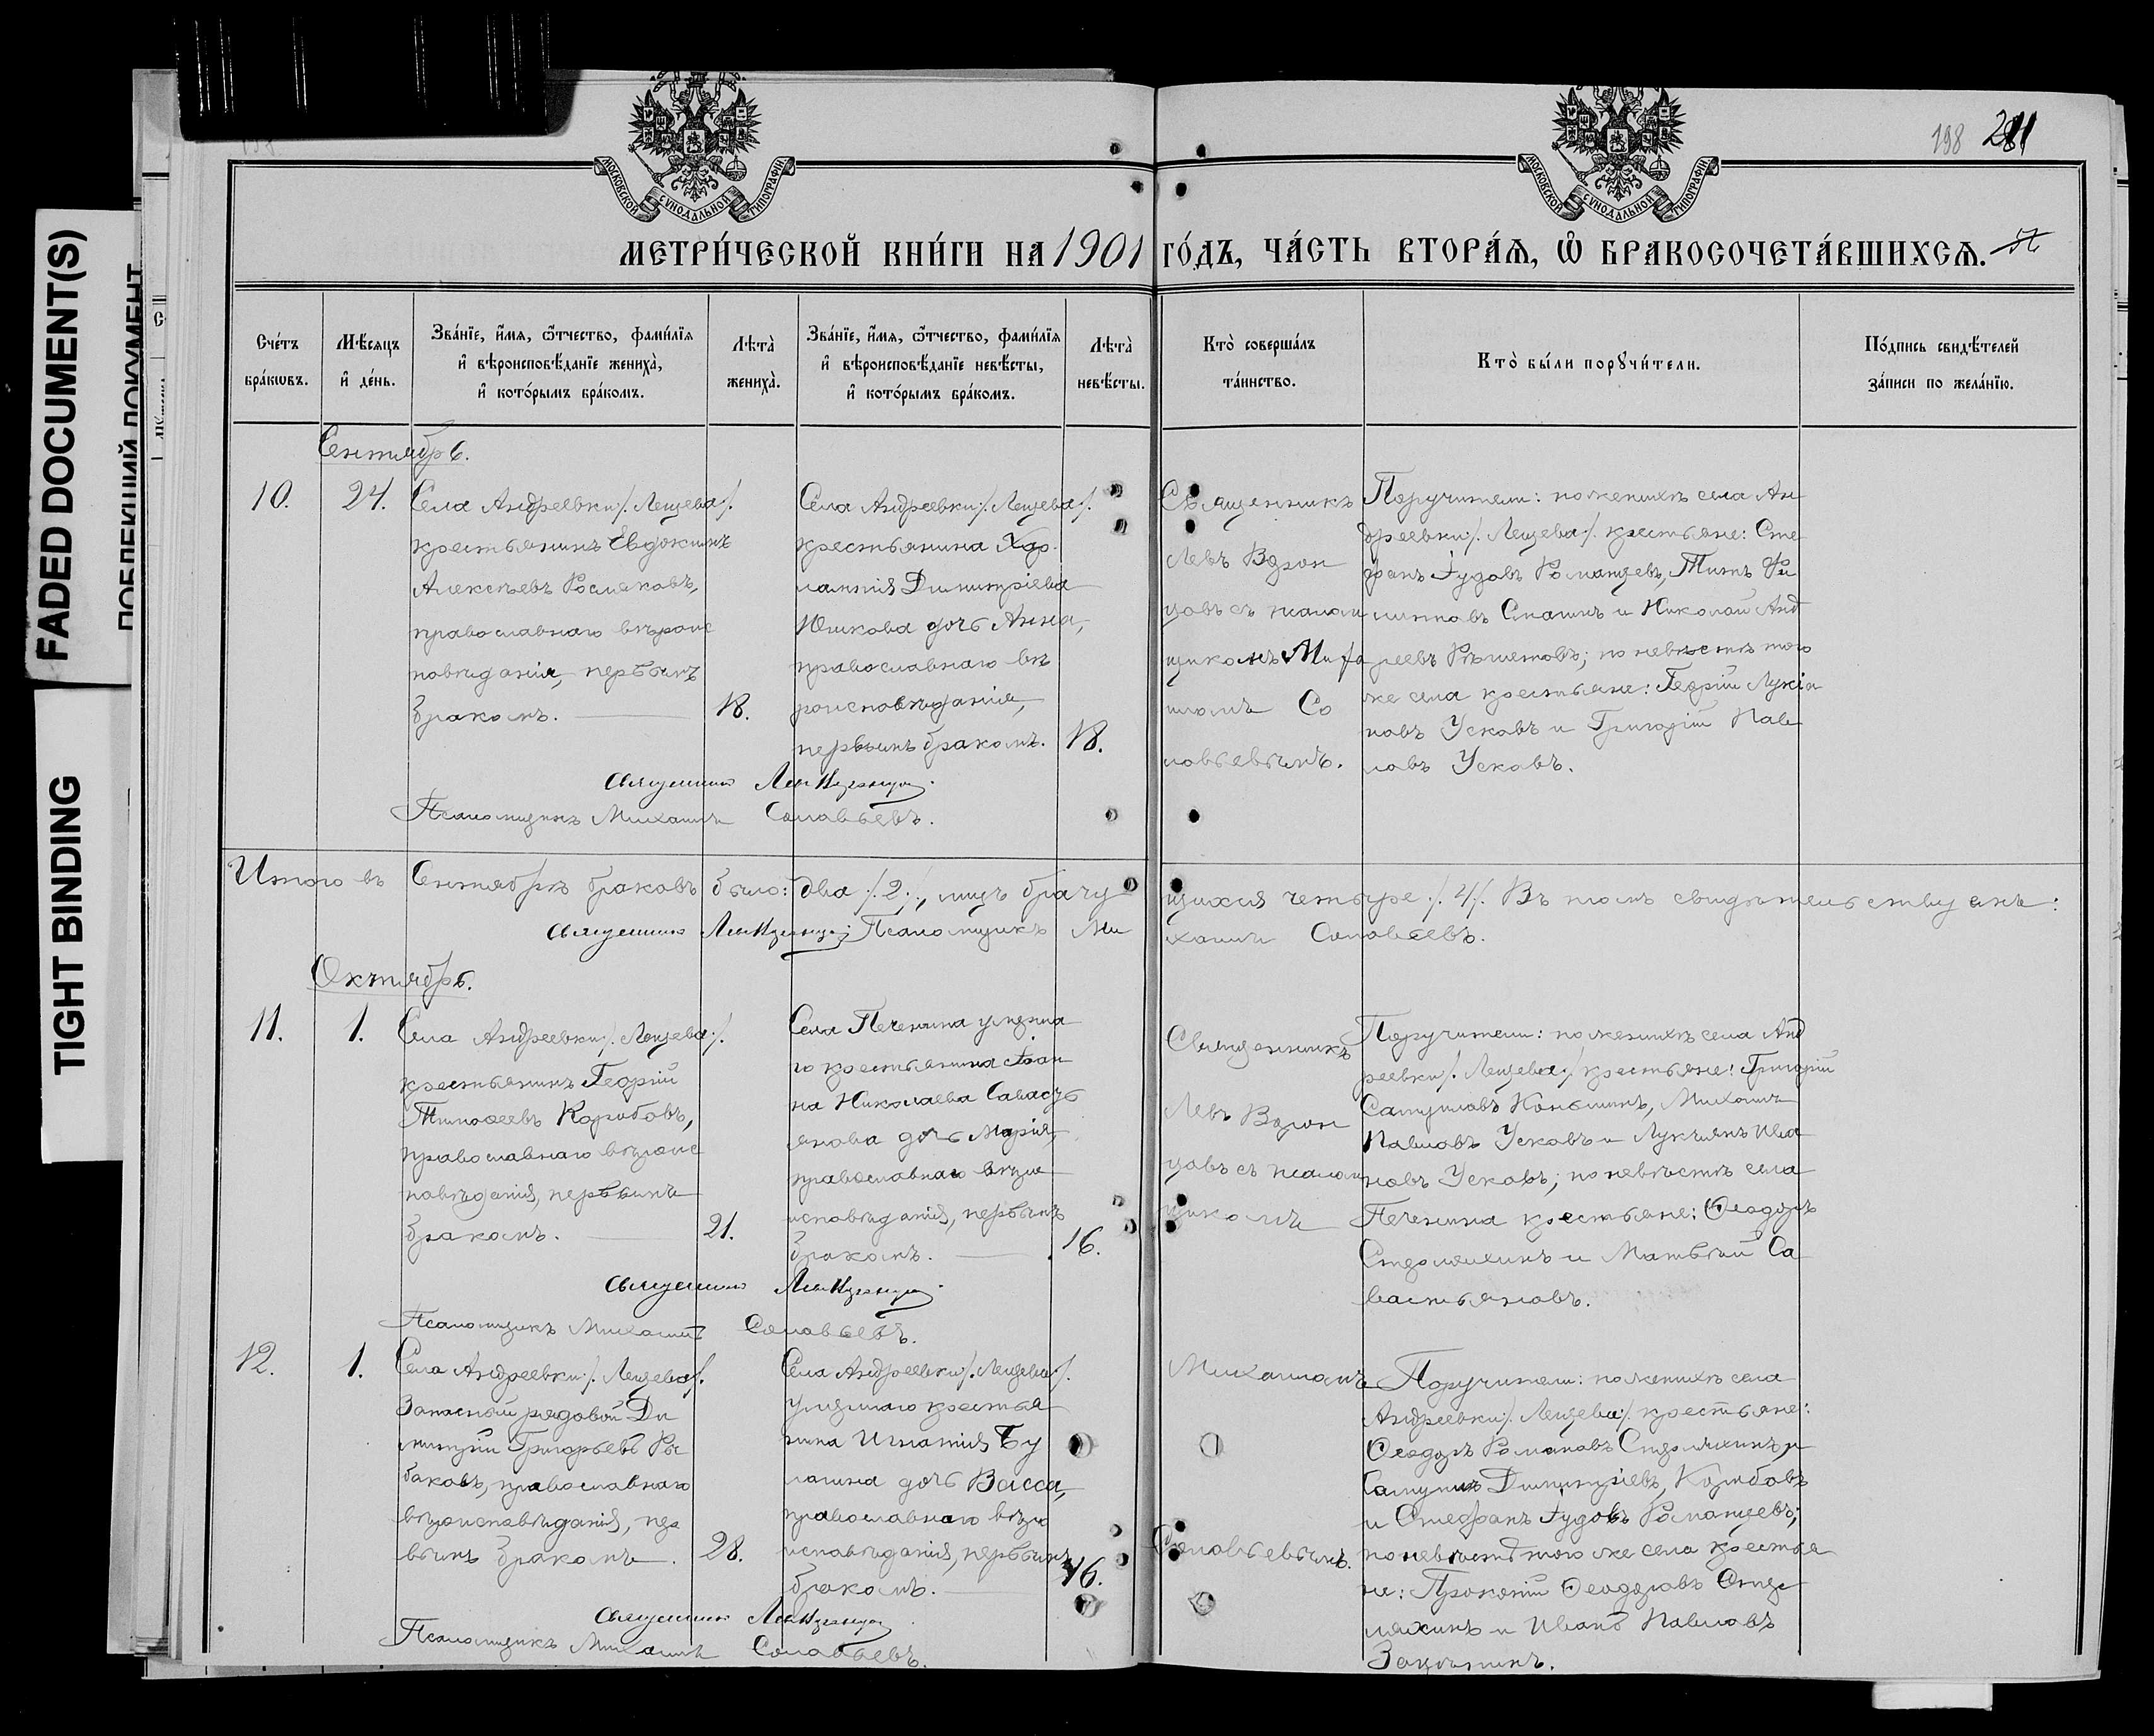 FADED DOCUMENT(S)
TIGHT BINDING
198 281
МОСКОВСКОЙ СѴНОДАЛЬНОЙ ТИПОГРАФІИ
МОСКОВСКОЙ СѴНОДАЛЬНОЙ ТИПОГРАФІИ
МЕТРИ́ЧЕСКОЙ КНИ́ГИ НА 1901 ГО́ДЪ, ЧА́СТЬ ВТОРА́Ѧ, Ѡ҆ БРАКОСОЧЕТА́ВШИХСѦ.
Сче́тъ
бра́кѡвъ.
Мѣ́сѧцъ
и҆ де́нь.
Зва́нїе, и҆́мѧ, ѻ҆́тчество, фами́лїѧ
и҆ вѣроисповѣ́данїе жениха̀,
и҆ кото́рымъ бра́комъ.
Лѣта̀
жениха̀.
Зва́нїе, и҆́мѧ, ѻ҆́тчество, фами́лїѧ
и҆ вѣроисповѣ́данїе невѣ́сты,
и҆ кото́рымъ бра́комъ.
Лѣта̀
невѣ́сты.
Кто̀ соверша́лъ
та́инство.
Кто̀ бы́ли порꙋчи́тели.
По́дпись свидѣ́телей
за́писи по жела́нїю.
Сентябрь.
10.
24.
Села Андреевки /. Лещева /.
крестьянинъ Евдокимъ
Алексѣевъ Росляковъ,
православнаго вѣроис
повѣданія, первымъ
бракомъ.
18.
Села Андреевки /. Лещева /.
крестьянина Хар
лампія Димитріева
Юшкова дочь Анна,
православнаго вѣ
роисповѣданія,
первымъ бракомъ.
18.
Священникъ
Левъ Ворон
цовъ съ псалом
щикомъ Миха
иломъ Со
ловьевымъ.
Поручители: по женихѣ села Ан
дреевки /. Лещева /. крестьяне: Сте
фанъ Іудовъ Романцевъ, Титъ Фи
липповъ Спашинъ и Николай Анд
реевъ Рѣшетовъ; по невѣстѣ того
же села крестьяне: Георгій Лукія
новъ Усковъ и Григорій Пав
ловъ Усковъ.
Священникъ Левъ Воронцовъ.
Псаломщикъ Михаилъ Соловьевъ.
Итого въ Сентябрѣ браковъ было: два /. 2 /., лицъ брачу
щихся четыре /. 4 /. Въ томъ свидѣтельствуемъ:
Священникъ Левъ Воронцовъ; Псаломщикъ Ми
хаилъ Соловьевъ.
Октябрь.
11.
1.
Села Андреевки /. Лещева /.
крестьянинъ Георгій
Тимоѳеевъ Коробовъ,
православнаго вѣроис
повѣданія, первымъ
бракомъ.
21.
Села Печенина умерша
го крестьянина Іоан
на Николаева Савасть
янова дочь Марія,
православнаго вѣро
исповѣданія, первымъ
бракомъ.
16.
Священникъ
Левъ Ворон
цовъ съ псалом
щикомъ
Поручители: по женихѣ села Анд
реевки /. Лещева /. крестьяне: Григорій
Самуиловъ Коньшинъ, Михаилъ
Павловъ Усковъ и Лукіянъ Ива
новъ Усковъ; по невѣстѣ села
Печенина крестьяне: Ѳеодоръ
Стдоляхинъ и Матвѣй Са
вастьяновъ.
Священникъ Левъ Воронцовъ.
Псаломщикъ Михаилъ Соловьевъ.
12.
1.
Села Андреевки /. Лещева /.
Запасный рядовой Ди
митрій Григорьевъ Ры
баковъ, православнаго
вѣроисповѣданія, пер
вымъ бракомъ.
28.
Села Андреевки /. Лещева /.
умершаго крестья
нина Игнатія Бу
лагина дочь Васса,
православнаго вѣро
исповѣданія, первымъ
бракомъ.
16.
Михаиломъ
Соловьевымъ.
Поручители: по женихѣ села
Андреевки /. Лещева /. крестьяне:
Ѳеодоръ Романовъ и
Самуилъ Димитріевъ Коробовъ
и Стефанъ Іудовъ Романцевъ;
по невѣстѣ того же села крестья
не: Прокопій Ѳеодоровъ
и Иванъ Павловъ
Священникъ Левъ Воронцовъ
Псаломщикъ Михаилъ Соловьевъ.